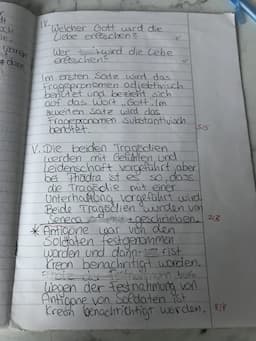 IV.
Welcher Gott wird die
Liebe erlöschen?
Wer wird die Liebe
erlöschen?
Im ersten Satz wird das
Fragepronomen adjektivisch
benützt und bezieht sich
auf das Wort „Gott". Im
zweiten Satz wird das
Fragepronomen substantivisch
benützt.
5/5
V. Die beiden Tragödien
werden mit Gefühlen und
Leidenschaft vorgeführt aber
bei Phädra ist es so, dass
die Tragödie mit einer
Unterhaltung vorgeführt wird.
Beide Tragödien wurden von
Seneca geschrieben.
2/8
* Antigone war von den
Soldaten festgenommen
worden und dann ist
Kreon benachritigt worden.
Wegen der Festnahmung von
Antigone von Soldaten ist
Kreon benachrichtigt worden.
8/8